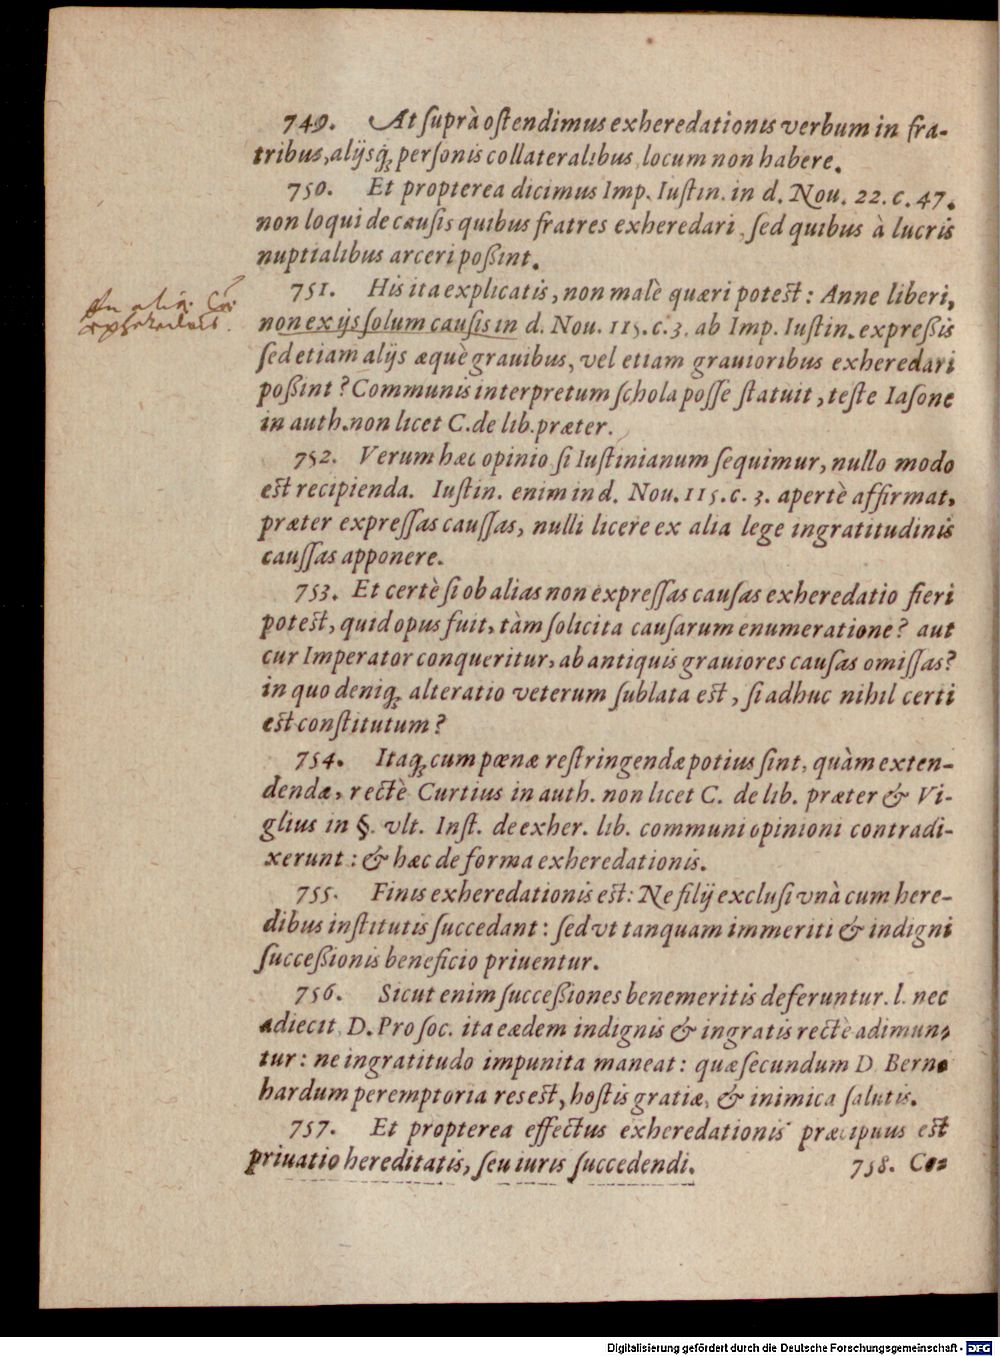 749. At ſuprà oſtendimus exheredationis verbum in fra-
tribus, alijsq́; perſonis collateralibus locum non habere.
750. Et propterea dicimus Imp. Iuſtin. in d. Nou. 22. c. 47.
non loqui de cauſis quibus fratres exheredari, ſed quibus à lucris
nuptialibus arceri poßint.
751. His ita explicatis, non malè quæri poteſt: Anne liberi,
non ex ijs ſolum cauſis in d. Nou. 115. c. 3. ab Imp. Iuſtin. expreßis
ſed etiam alijs æquè grauibus, vel etiam grauioribus exheredari
poßint? Communis interpretum ſchola poſſe ſtatuit, teſte Iaſone
in auth. non licet C. de lib. præter.
752. Verum hæc opinio ſi Iuſtinianum ſequimur, nullo modo
eſt recipienda. Iuſtin. enim in d. Nou. 115. c. 3. apertè affirmat,
præter expreſſas cauſſas, nulli licere ex alia lege ingratitudinis
cauſſas apponere.
753. Et certè ſi ob alias non expreſſas cauſas exheredatio fieri
poteſt, quid opus fuit, tàm ſolicita cauſarum enumeratione? aut
cur Imperator conqueritur, ab antiquis grauiores cauſas omiſſas?
in quo deniq́; alteratio veterum ſublata eſt, ſi adhuc nihil certi
eſt conſtitutum?
754. Itaq́; cum pœnæ reſtringendæ potius ſint, quàm exten-
dendæ, rectè Curtius in auth. non licet C. de lib. præter & Vi-
glius in §. vlt. Inſt. de exher. lib. communi opinioni contradi-
xerunt: & hæc de forma exheredationis.
755. Finis exheredationis eſt: Ne filij excluſi vnà cum here-
dibus inſtitutis ſuccedant: ſed vt tanquam immeriti & indigni
ſucceßionis beneficio priuentur.
756. Sicut enim ſucceßiones benemeritis deferuntur. l. nec
adiecit D. Pro ſoc. ita eædem indignis & ingratis rectè adimun-
tur: ne ingratitudo impunita maneat: quæ ſecundum D. Bern-
hardum peremptoria res eſt, hoſtis gratiæ, & inimica ſalutis.
757. Et propterea effectus exheredationis præcipuus eſt
priuatio hereditatis, ſeu iuris ſuccedendi. 758. Co-
Digitalisierung gefördert durch die Deutsche Forschungsgemeinschaft - DFG